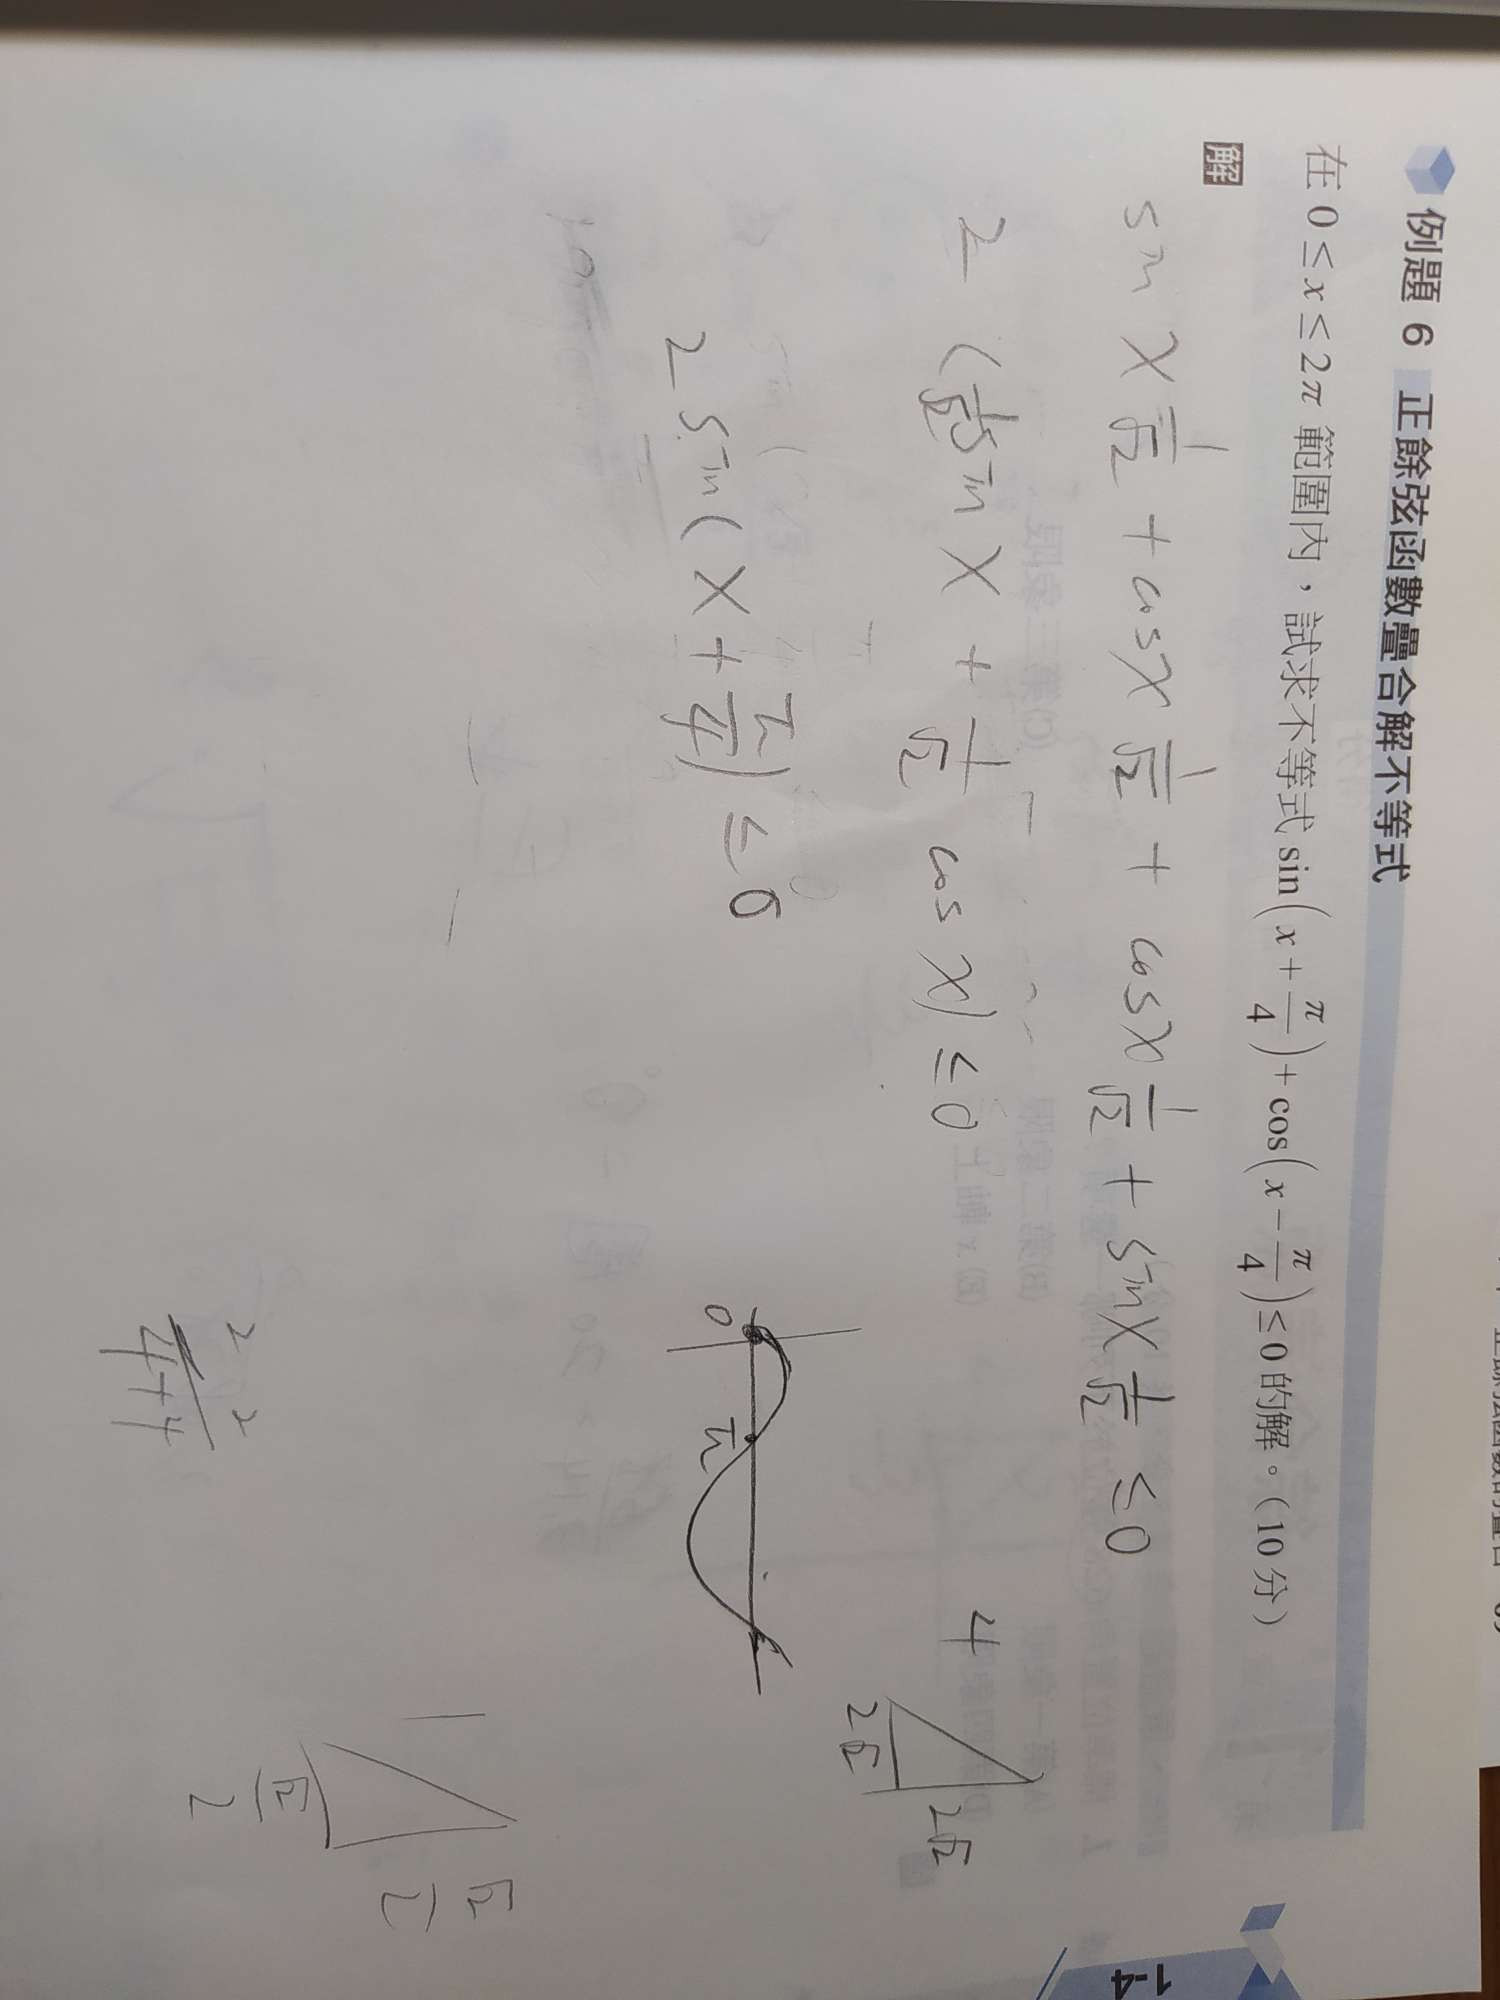 例題 6 正餘弦函數疊合解不等式
在 0 ≤ x ≤ 2π 範圍內，試求不等式 sin(x + π/4) + cos(x − π/4) ≤ 0 的解。（10 分）
解
sin x 1/√2 + cos x 1/√2 + cos x 1/√2 + sin x 1/√2 ≤ 0
2 (1/√2 sin x + 1/√2 cos x) ≤ 0
2 sin (x + π/4) ≤ 0
4
2√2
2√2
0
π
1
√2/2
√2/2
2 2
4+4
1-4